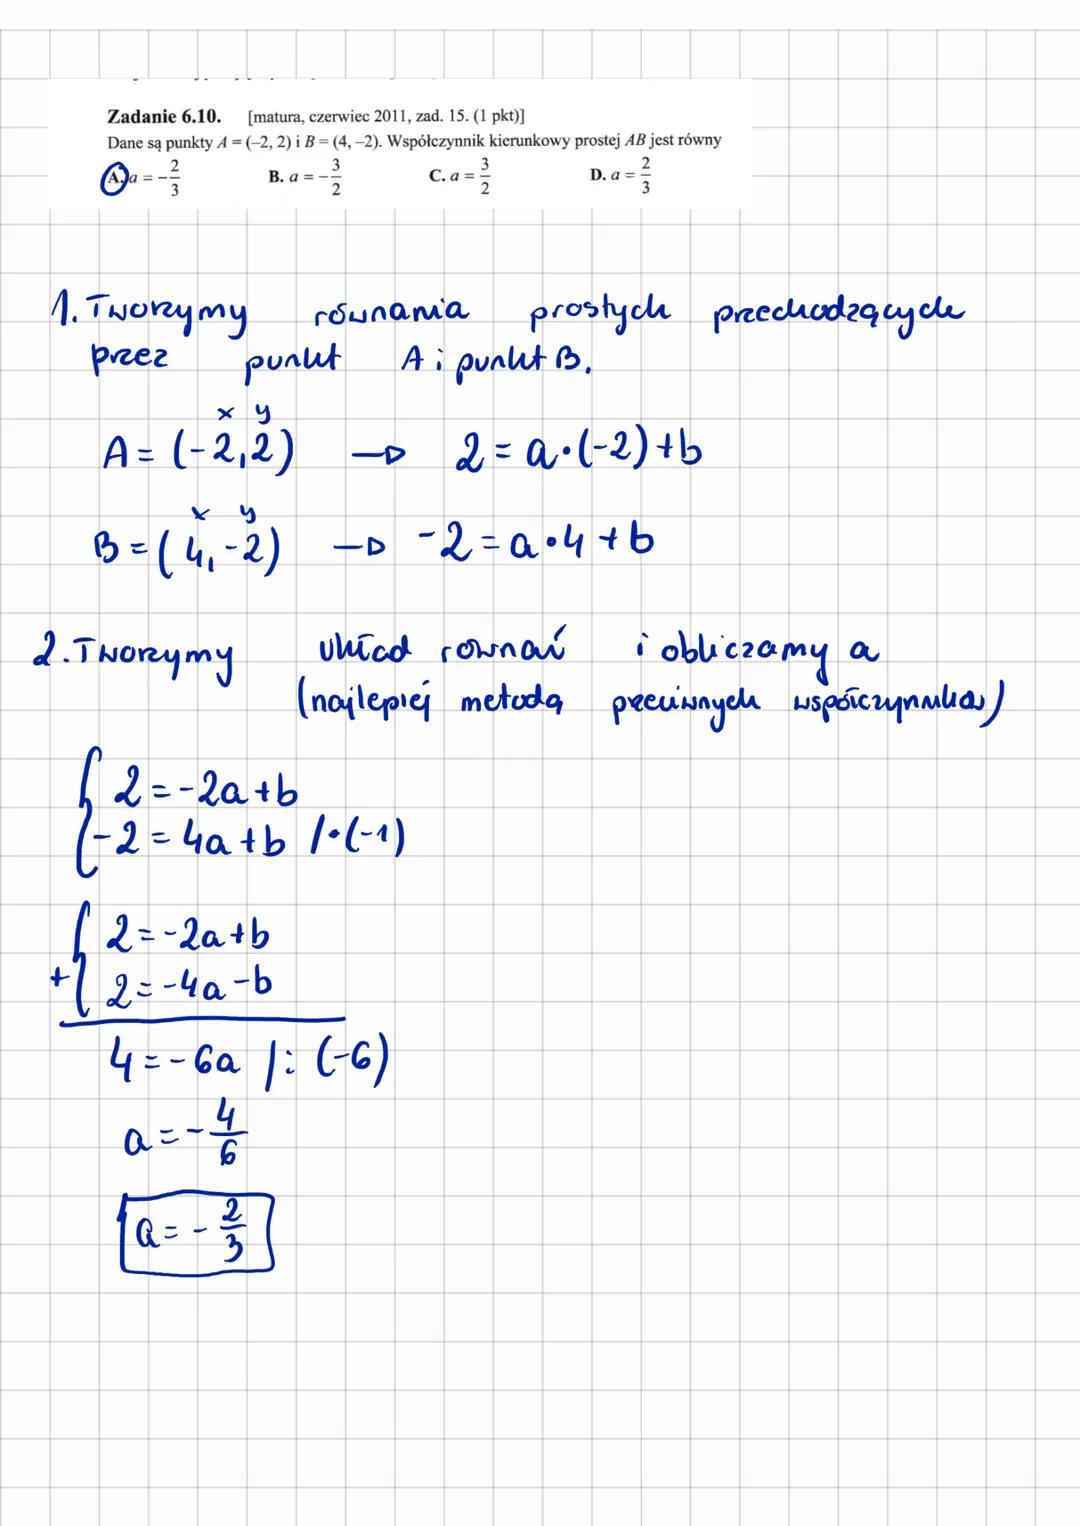 Zadanie 6.10. [matura, czerwiec 2011, zad. 15. (1 pkt)]
Dane są punkty A = (–2, 2) i B = (4, –2). Współczynnik kierunkowy prostej AB jest równy
A. a = -2/3 B. a = -3/2 C. a = 3/2 D. a = 2/3
1. Tworzymy równania prostych przechodzących
przez punkt A i punkt B.
x y
A = (-2,2) → 2 = a·(-2)+b
x y
B = (4,-2) → -2 = a·4+b
2. Tworzymy układ rownań i obliczamy a
(najlepiej metodą przeciwnych współczynników)
2 = -2a+b
-2 = 4a+b /·(-1)
2 = -2a+b
+ 2 = -4a-b
4 = -6a /: (-6)
a = -4/6
a = -2/3